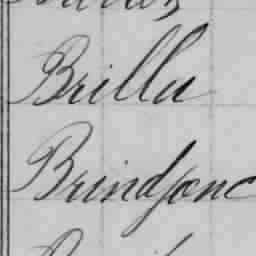 Brilla
Brindjonc